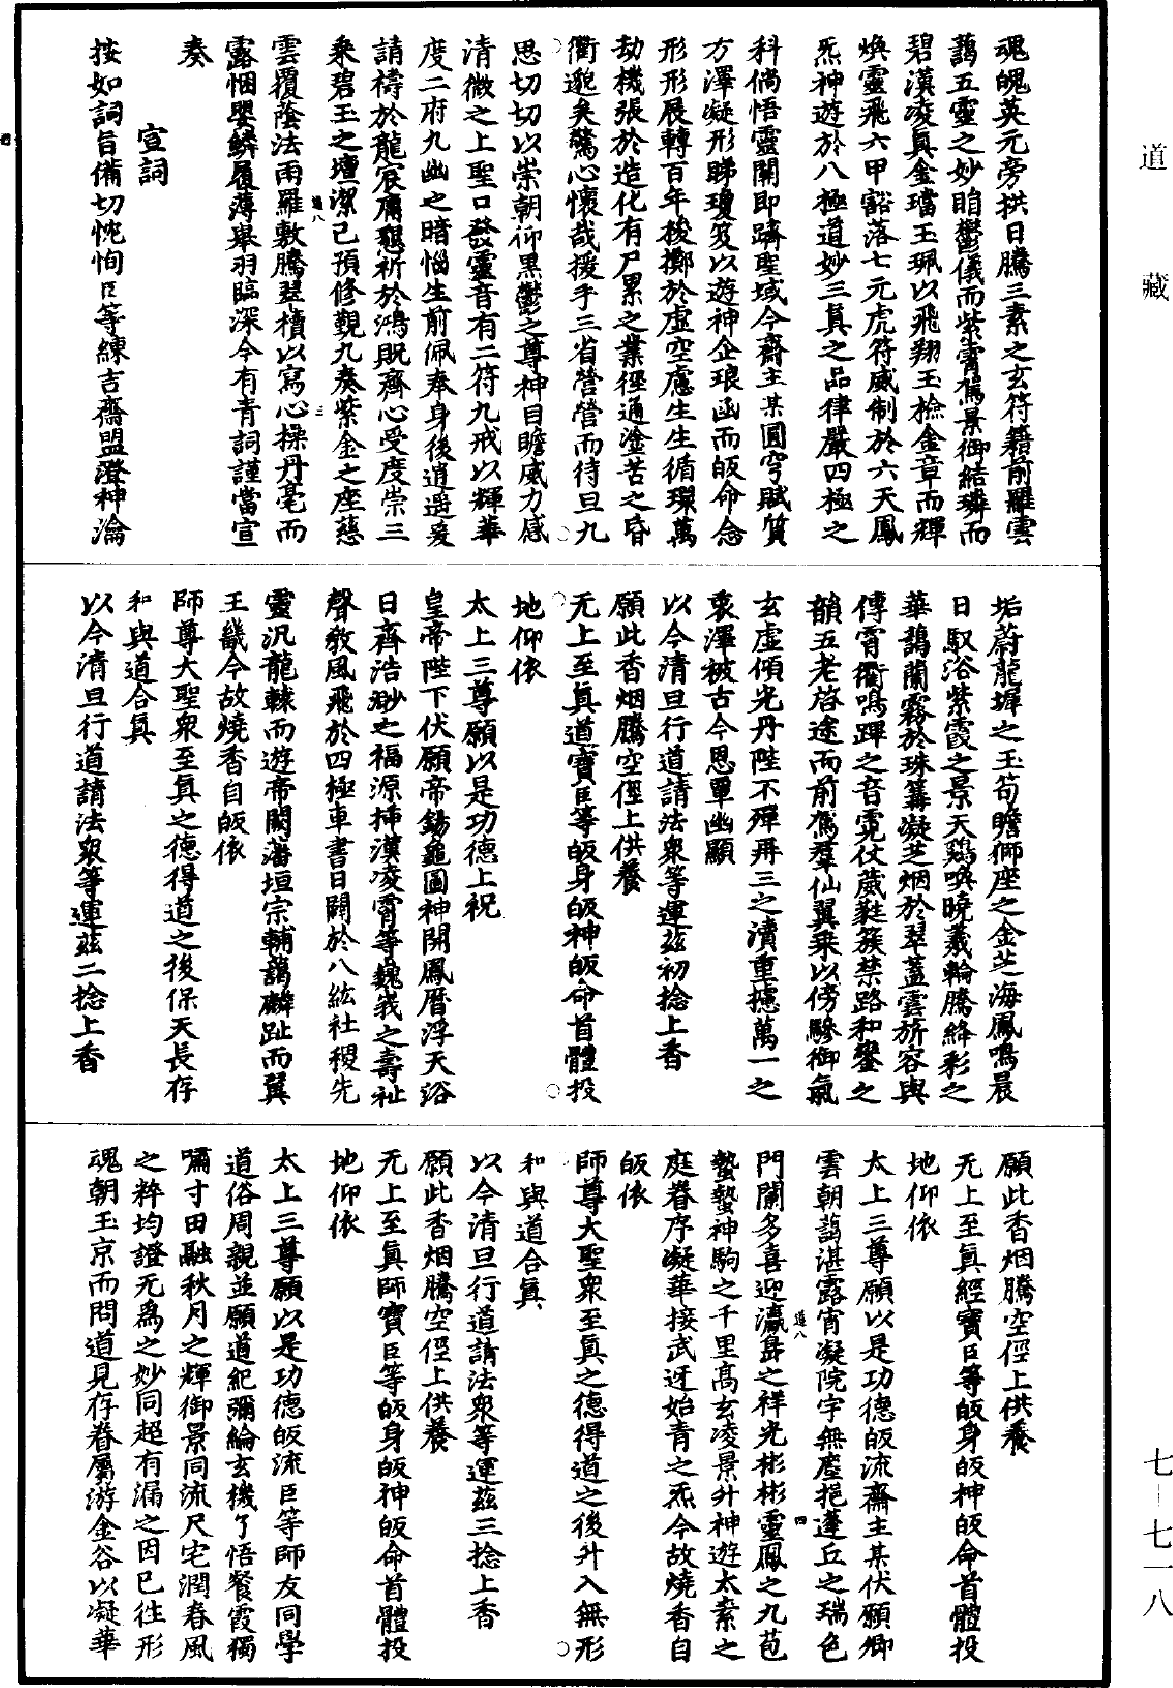 道藏
七—七一八
魂魄英元旁拱日騰三素之玄符籍前羅雲
藹五靈之妙眙鬱儀而紫霄駕景御結璘而
碧漢凌真金璫玉珮以飛翔玉檢金章而輝
煥靈飛六甲豁落七元虎符威制於六天鳳
炁神遊於八極道妙三真之品律嚴四極之
科倘悟靈關即躋聖域今齋主某圓穹賦質
方澤凝形睇瓊笈以遊神企琅函而皈命念
形形展轉百年梭擲於虛空慮生生循環萬
劫機張於造化有尸累之業徑通塗苦之昏
衢邈矣驚心懷哉援手三省營營而待旦九
思切切以崇朝仰黑鬱之尊神目瞻威力感
清微之上聖口發靈音有二符九戒以輝華
度二府九幽之暗惱生前佩奉身後逍遥爰
請禱於龍宸庸懇祈於鴻貺齋心受度崇三
乘碧玉之壇潔己預修覲九奏紫金之座慈
道八
三
雲覆蔭法雨羅敷騰翠櫝以寫心操丹毫而
露悃嬰鱗履薄舉羽臨深今有青詞謹當宣
奏
宣詞
按如詞旨備切忱恂臣等練吉齋盟澄神瀹
垢蔚龍墀之玉筍瞻獅座之金芝海鳳鳴晨
日馭浴紫霞之景天鷄喚曉羲輪騰絳彩之
華藹蘭霧於珠篝凝芝烟於翠蓋雲旂容與
傳霄衢鳴蹕之音霓仗葳蕤簇禁路和鑾之
韻五老啓途而前駕羣仙翼乘以傍驂御氣
玄虛傾光丹陛不殫再三之瀆重攄萬一之
衷澤被古今恩覃幽顯
以今清旦行道請法衆等運茲初捻上香
願此香烟騰空徑上供養
无上至真道寶臣等皈身皈神皈命首體投
地仰依
太上三尊願以是功德上祝
皇帝陛下伏願帝錫龜圖神開鳳曆浮天浴
日齊浩渺之福源挿漢凌霄等巍峩之壽祉
聲教風飛於四極車書日闢於八紘社稷先
靈汎龍輬而遊帝闕藩垣宗輔藹麟趾而翼
王畿今故燒香自皈依
師尊大聖衆至真之德得道之後保天長存
和與道合真
以今清旦行道請法衆等運茲二捻上香
願此香烟騰空徑上供養
无上至真經寶臣等皈身皈神皈命首體投
地仰依
太上三尊願以是功德皈流齋主某伏願卿
雲朝藹湛露宵凝院宇無塵挹蓬丘之瑞色
道八
四
門闌多喜迎瀛㠀之祥光彬彬靈鳳之九苞
蟄蟄神駒之千里高玄凌景升神遊太素之
庭眷序凝華接武迓始青之炁今故燒香自
皈依
師尊大聖衆至真之德得道之後升入無形
和與道合真
以今清旦行道請法衆等運茲三捻上香
願此香烟騰空徑上供養
无上至真師寶臣等皈身皈神皈命首體投
地仰依
太上三尊願以是功德皈流臣等師友同學
道俗周親並願道紀彌綸玄機了悟餐霞獨
嘯寸田融秋月之輝御景同流尺宅潤春風
之粹均證无爲之妙同超有漏之因已往形
魂朝玉京而問道見存眷屬游金谷以凝華